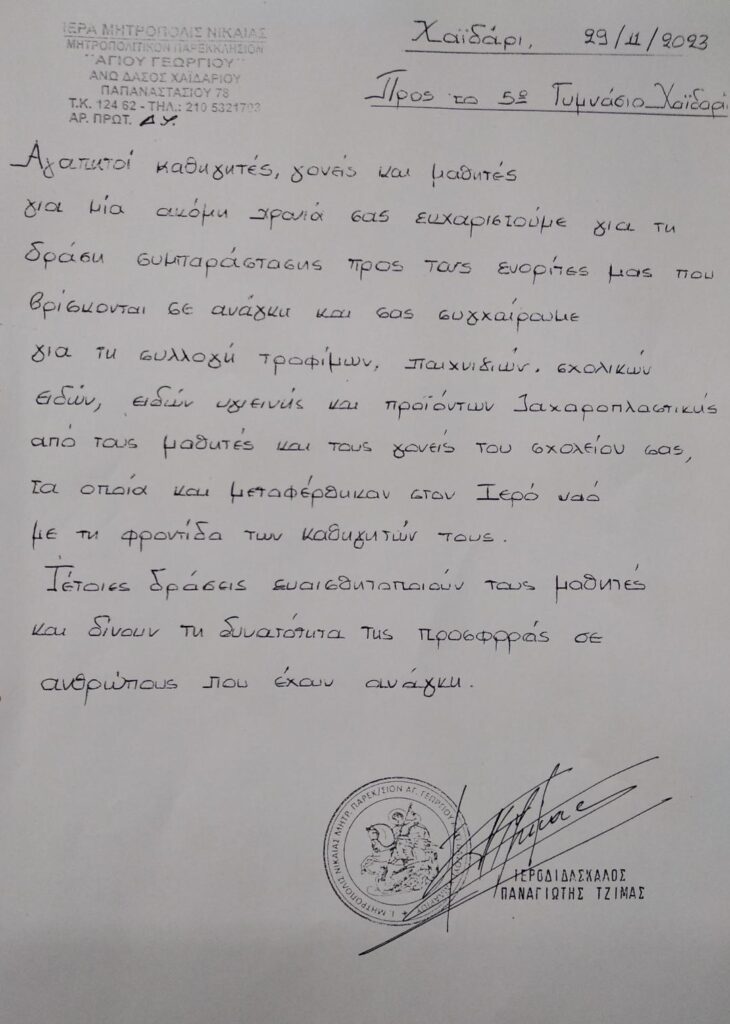 ΙΕΡΑ ΜΗΤΡΟΠΟΛΙΣ ΝΙΚΑΙΑΣ
ΜΗΤΡΟΠΟΛΙΤΙΚΟΝ ΠΑΡΕΚΚΛΗΣΙΟΝ
"ΑΓΙΟΥ ΓΕΩΡΓΙΟΥ"
ΑΝΩ ΔΑΣΟΣ ΧΑΪΔΑΡΙΟΥ
ΠΑΠΑΝΑΣΤΑΣΙΟΥ 78
Τ.Κ. 124 62 - ΤΗΛ.: 210 5321793
ΑΡ. ΠΡΩΤ. Δ.Υ.
Χαϊδάρι, 29/11/2023
Προς το 5º Γυμνάσιο Χαϊδαρί
Αγαπητοί καθηγητές, γονείς και μαθητές
για μία ακόμη χρονιά σας ευχαριστούμε για τη
δράση συμπαράστασης προς τους ενορίτες μας που
βρίσκονται σε ανάγκη και σας συγχαίρουμε
για τη συλλογή τροφίμων, παιχνιδιών, σχολικών
ειδών, ειδών υγιεινής και προϊόντων Ζαχαροπλαστικής
από τους μαθητές και τους γονείς του σχολείου σας,
τα οποία και μεταφέρθηκαν στον Ιερό ναό
με τη φροντίδα των καθηγητών τους.
Τέτοιες δράσεις ευαισθητοποιούν τους μαθητές
και δίνουν τη δυνατότητα της προσφοράς σε
ανθρώπους που έχουν ανάγκη.
Ι. ΜΗΤΡΟΠΟΛΙΣ ΝΙΚΑΙΑΣ ΜΗΤΡ. ΠΑΡΕΚ/ΣΙΟΝ ΑΓ. ΓΕΩΡΓΙΟΥ
ΙΕΡΟΔΙΔΑΣΚΑΛΟΣ
ΠΑΝΑΓΙΩΤΗΣ ΤΖΙΜΑΣ